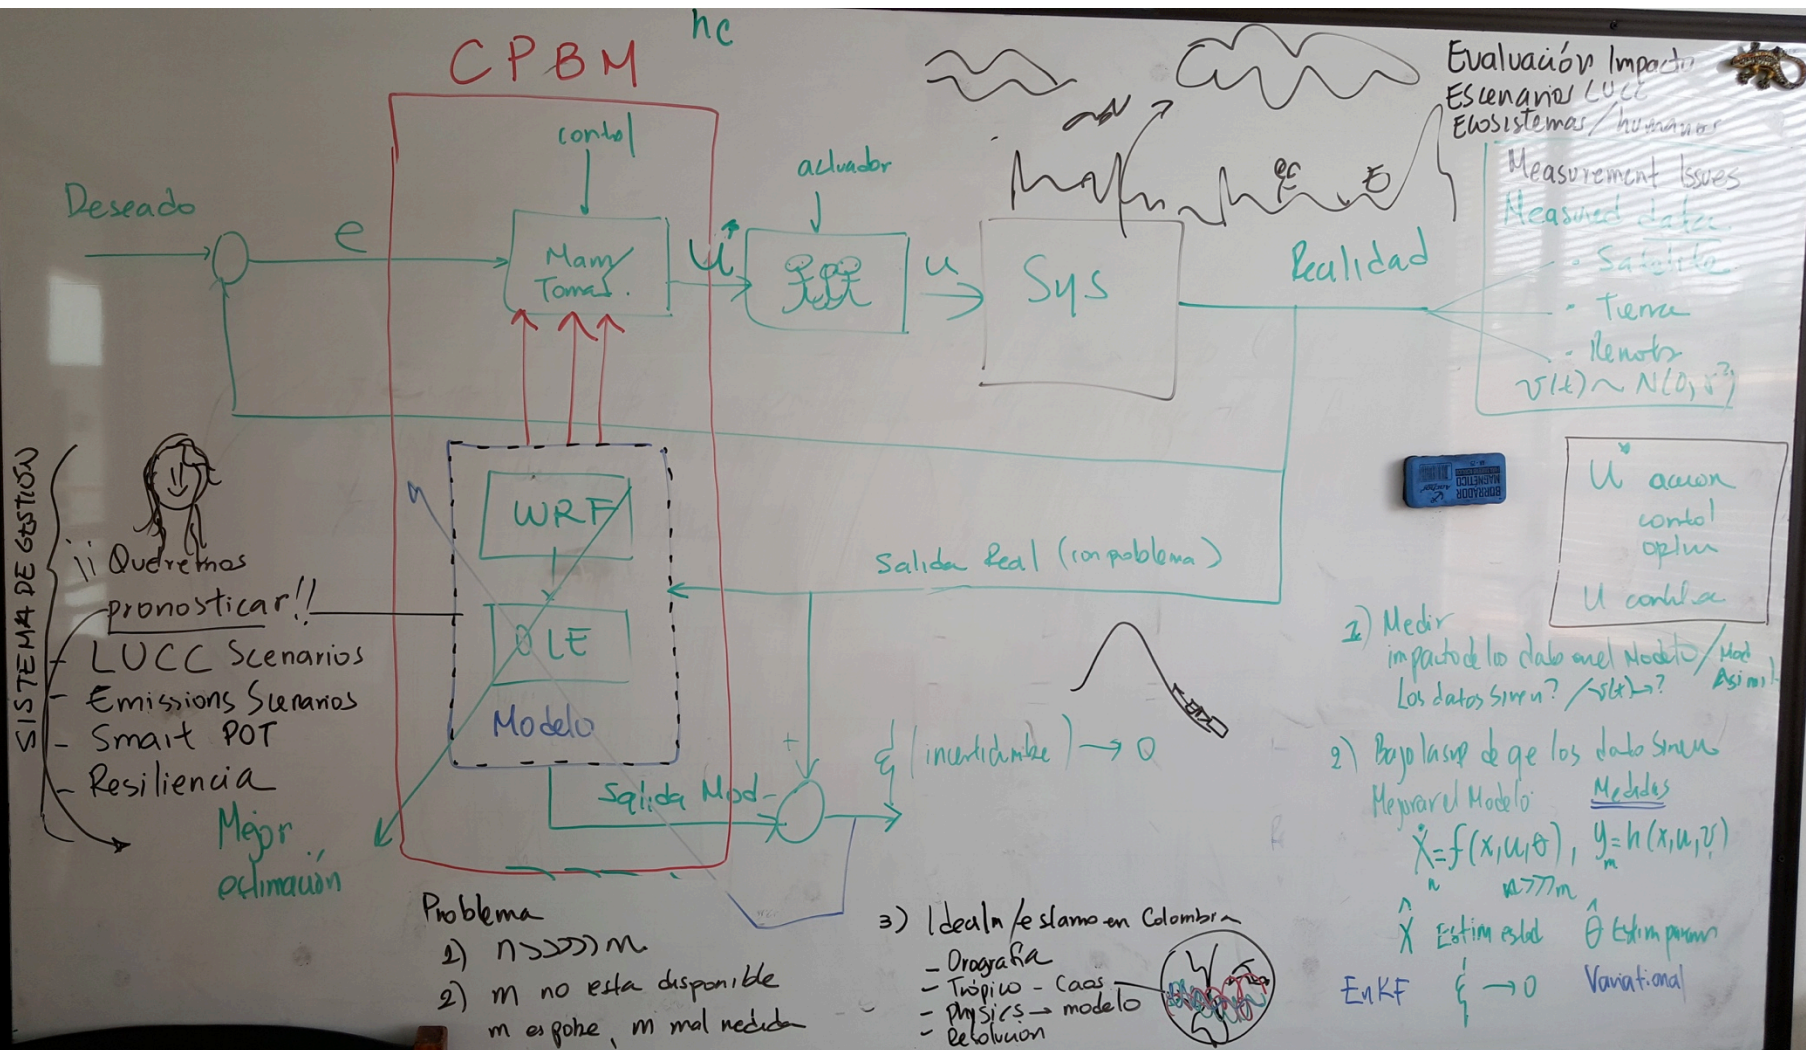 hc
CPBM
Evaluación Impacto
Escenarios LUCC
Ecosistemas/humanos
Measurement Issues
Measured data
- Satélite
- Tierra
- Remoto
v(t) ~ N(0, σ²)
Deseado
e
control
Mam/
Tomas.
U*
actuador
u
Sys
Realidad
SISTEMA DE GESTIÓN
¡¡Queremos
pronosticar!!
- LUCC Scenarios
- Emissions Scenarios
- Smart POT
- Resiliencia
Mejor
estimación
WRF
LE
Modelo
Salida Real (con problema)
Salida Mod
-
+
ξ (incertidumbre) → 0
BORRADOR
MAGNÉTICO
U* accion
control
optim
U
1) Medir
impacto de los dato en el Modelo / Mod
Asimil
Los datos sirven? / v(t) → ?
2) Bajo la sup de qe los dato sirven
Mejorar el Modelo
Medidas
Ẋ = f(x,u,θ), y = h(x,u,v)
n
m
n>>>m
X̂ Estim estad
θ̂ Estim param
EnKF
ξ → 0
Variational
Problema
1) n>>>>>m
2) m no esta disponible
m es pobre, m mal medida
3) Idealm/estamo en Colombia
- Orografía
- Trópico - Caos
- physics → modelo
- Resolución